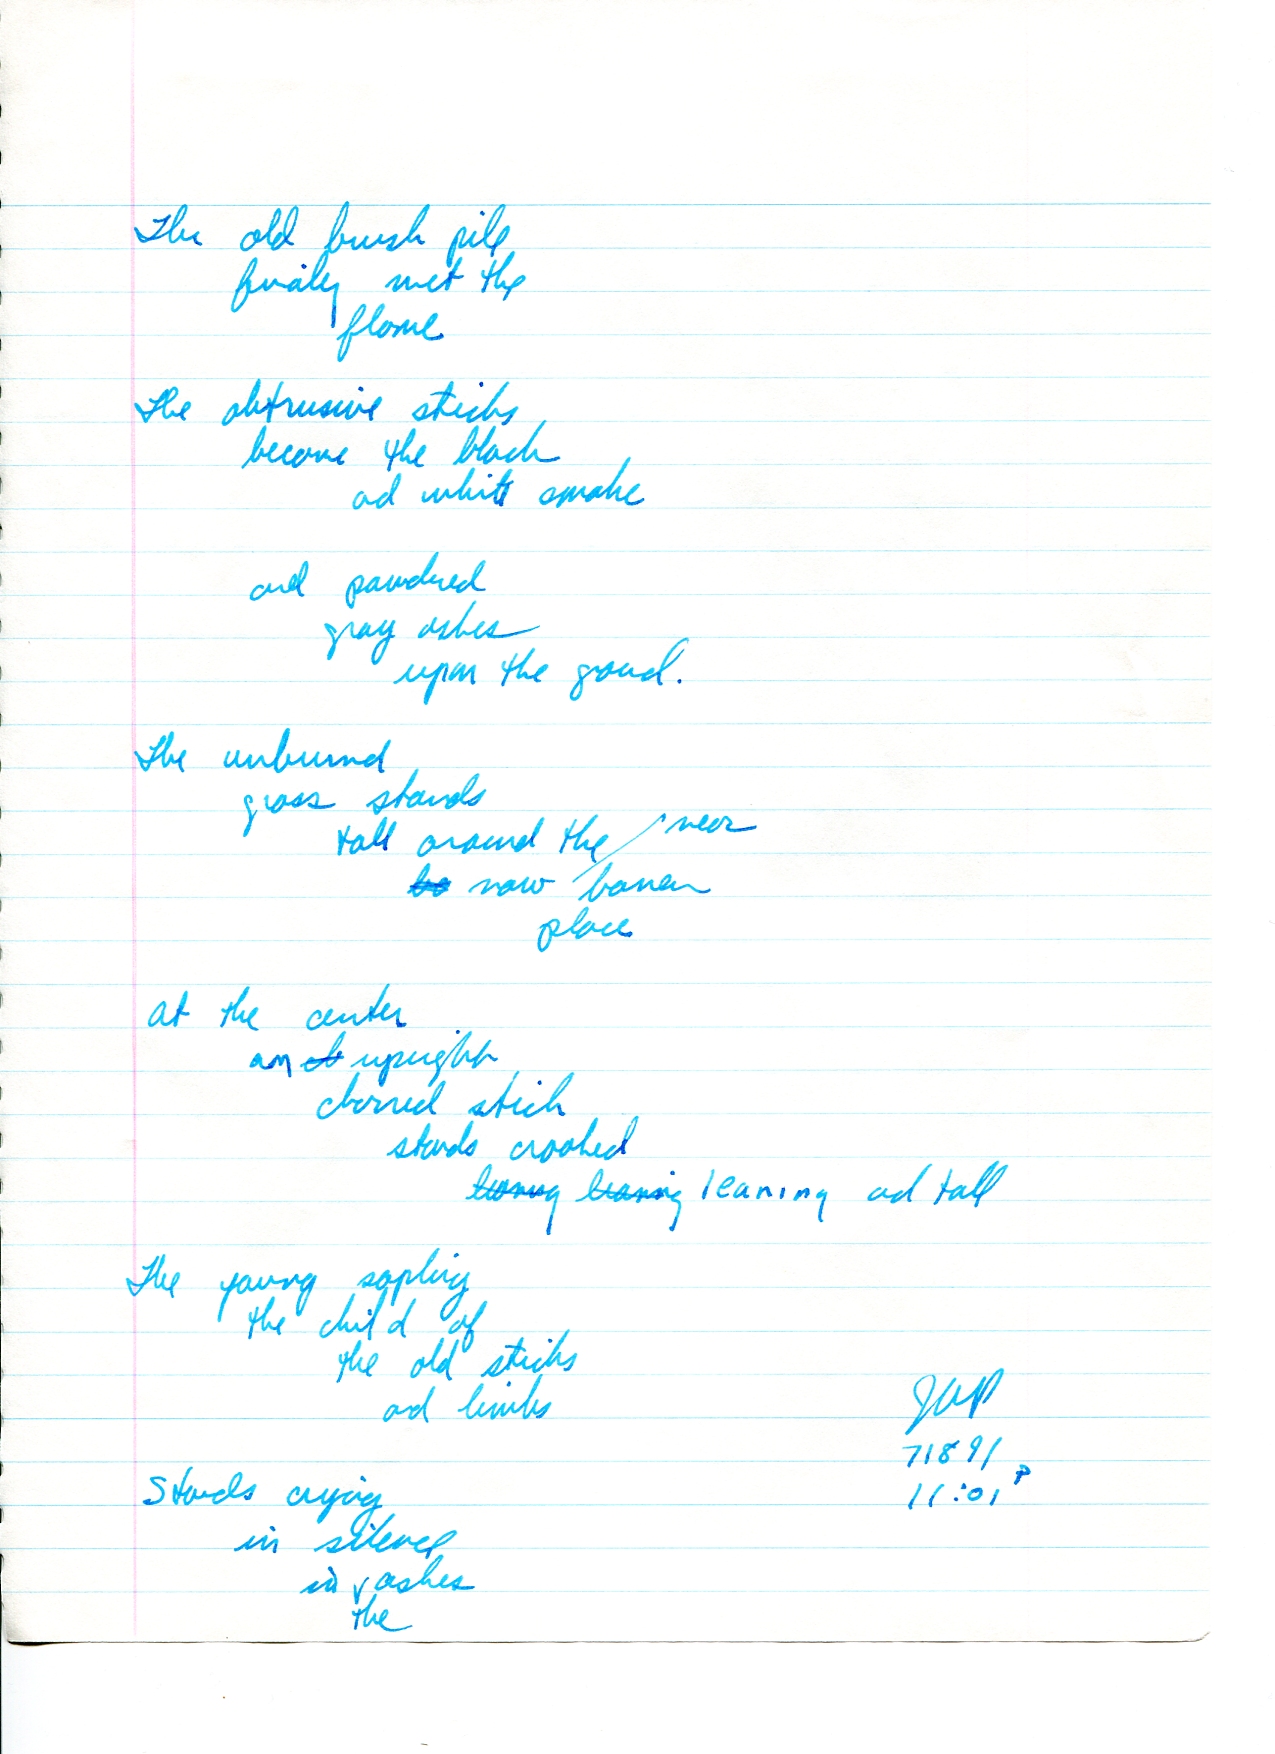 The old brush pile
finaly met the
flame
The obtrusive sticks
become the black
ad white smoke
and powdered
gray ashes
upon the groud.
The unburnd
grass stands
tall around the near
now barren
place
at the center
an upright
charred stick
stands crooked
leaning ad tall
The young sapling
the child of
the old sticks
ad limbs
JWP
71891
11:01 P
Stands crying
in silence
in the ashes